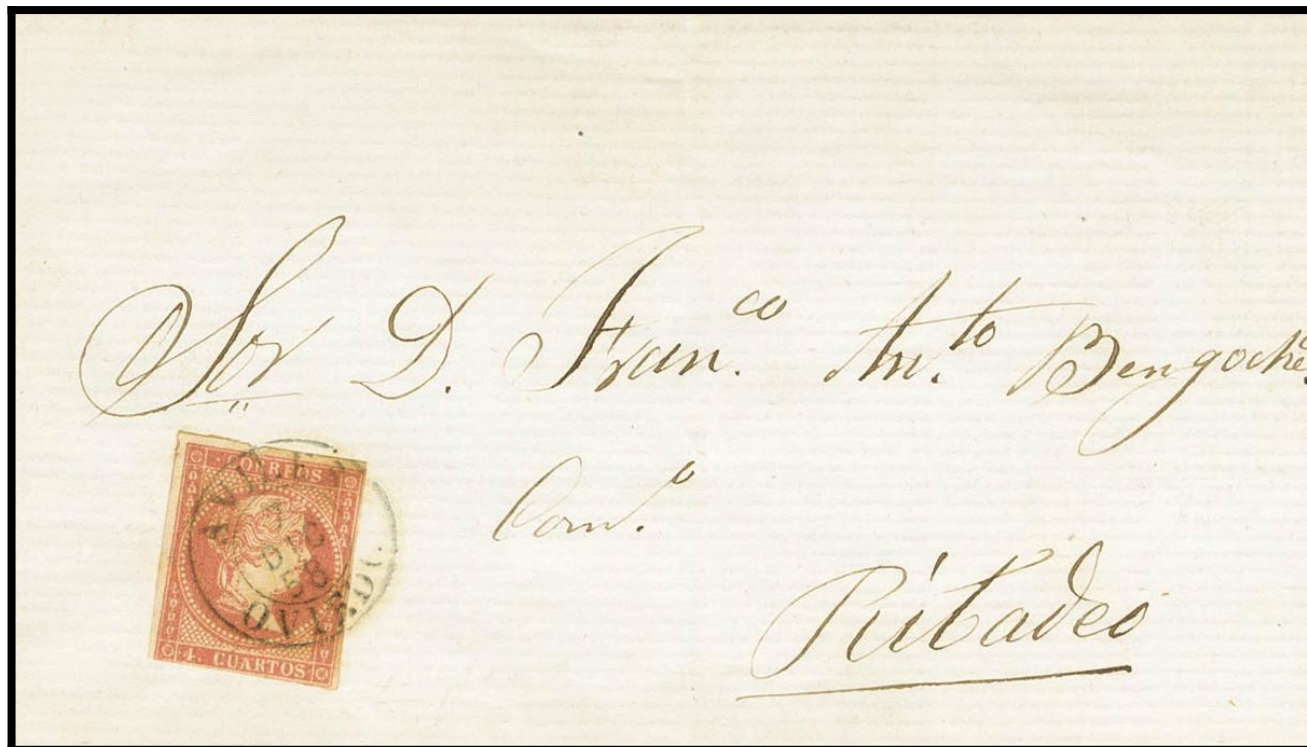 Sor D. Fran.co Ant.to Bengoche
Com.o
Ribadeo
CORREOS
AVILES
DIC
58
OVIEDO.
4. CUARTOS